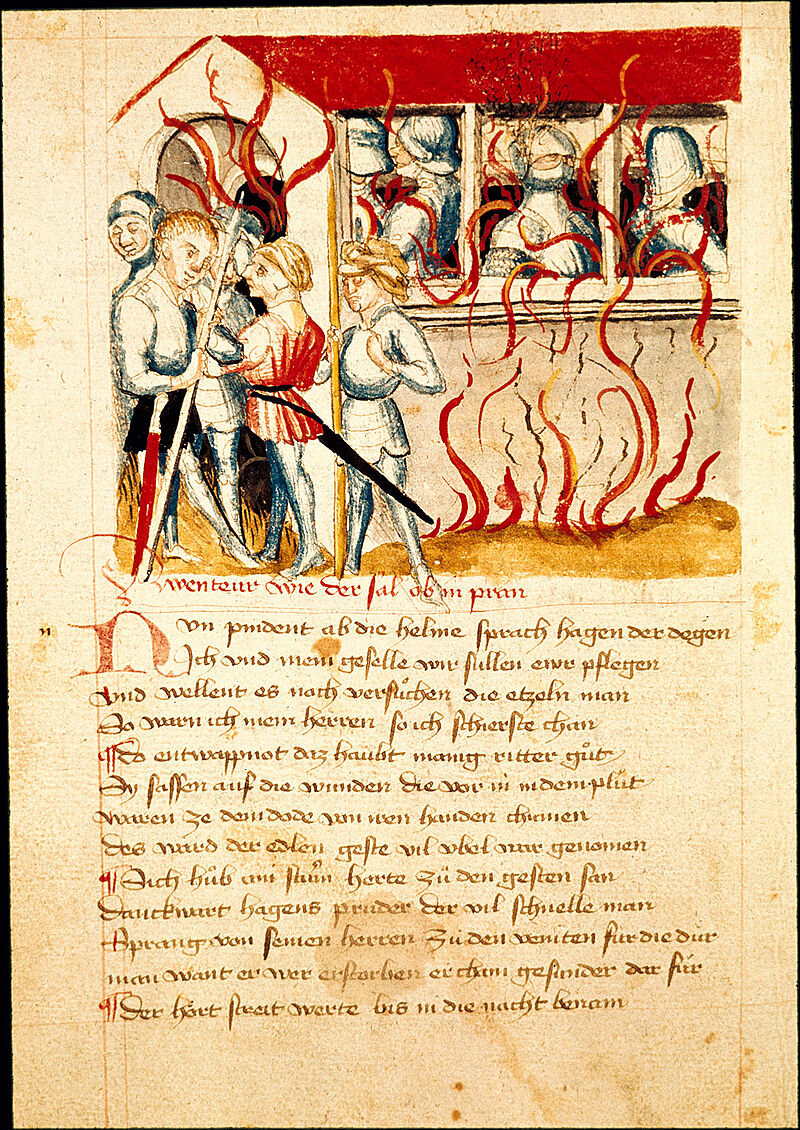 Awenteur wie der sal ob in pran
n
Nvn pindent ab die helme sprach hagen der degen
Ich vnd mein geselle wir sullen ewr pflegen
Vnd wellent es noch versůchen die etzeln man
So warn ich mein herren so ich schierste chan
¶ Do entwappnot daz haubt manig ritter gůt
Sy sassen auf die wunden die vor in in dem plůt
waren ze dem dode von iren handen chumen
des ward der edlen geste vil vbel war genomen
¶ Sich hůb ain sturm herte zů den gesten san
Danckwart hagens průder der vil schnelle man
Sprang von seinen herren zů den veinten für die dür
man want er wer erstorben er cham gesunder dar für
¶ Der hört streit werte bis in die nacht benam